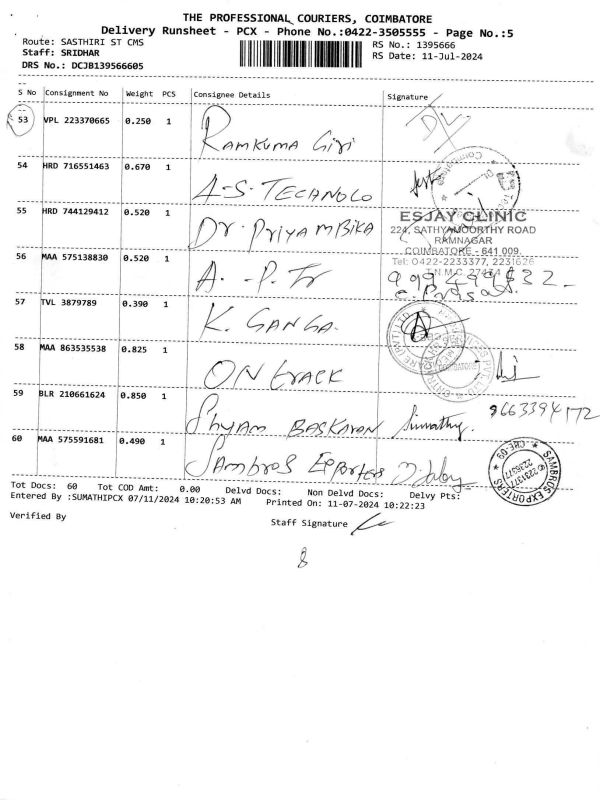 THE PROFESSIONAL COURIERS, COIMBATORE
Delivery Runsheet - PCX - Phone No.:0422-3505555 - Page No.:5
Route: SASTHIRI ST CMS
RS No.: 1395666
Staff: SRIDHAR
RS Date: 11-Jul-2024
DRS No.: DCJB139566605
S No Consignment No Weight PCS Consignee Details Signature
53 VPL 223370665 0.250 1 RAMKUMA Giri
54 HRD 716551463 0.670 1 A-S. TECANOLO
55 HRD 744129412 0.520 1 Dr. PRIYAMBIKA
ESJAY CLINIC
224, SATHYAMOORTHY ROAD
RAMNAGAR
COIMBATORE - 641 009.
Tel: 0422-2233377, 2231626
T.N.M.C. 27474
56 MAA 575138830 0.520 1 A. -P. Tr
57 TVL 3879789 0.390 1 K. GANGA.
58 MAA 863535538 0.825 1 ON track
59 BLR 210661624 0.850 1 Shyam BASKARON Sumathy. 9663394172
60 MAA 575591681 0.490 1 Sambros Exporters
SAMBROS EXPORTERS
Tot Docs: 60 Tot COD Amt: 0.00 Delvd Docs: Non Delvd Docs: Delvy Pts:
Entered By :SUMATHIPCX 07/11/2024 10:20:53 AM Printed On: 11-07-2024 10:22:23
Verified By
Staff Signature
8